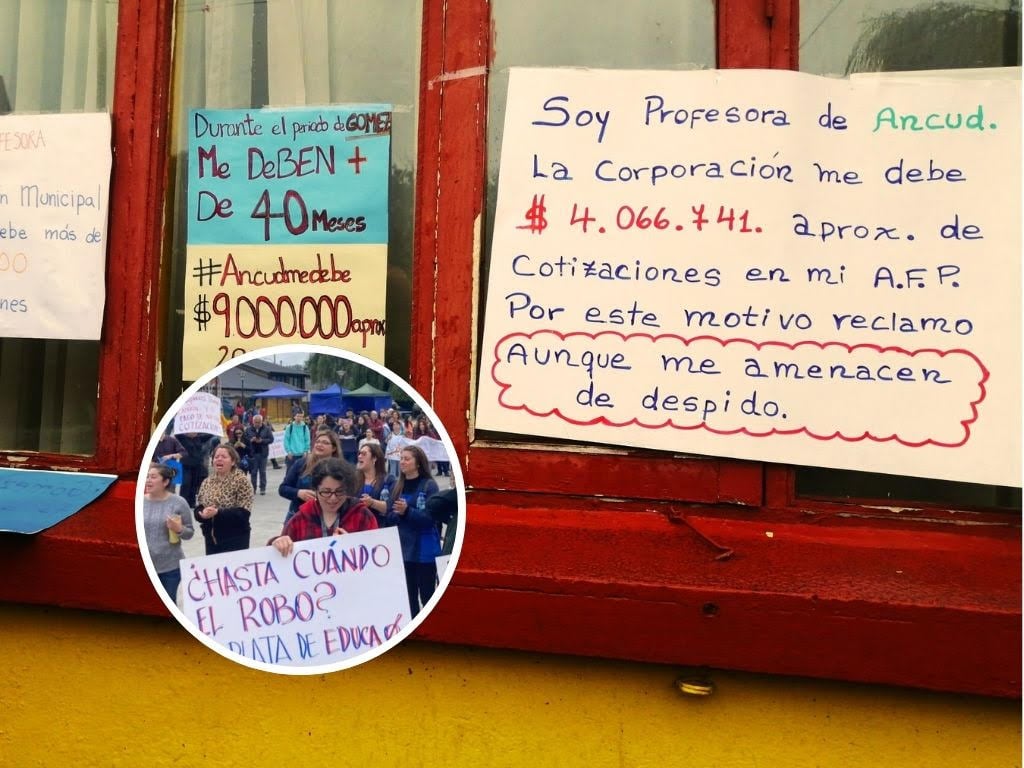 ESORA
n Municipal
ebe más de
00
nes
Durante el periodo de GOMEZ
Me DeBEN +
De 40 Meses
#Ancudmedebe
$9.000.000 aprox
Soy Profesora de Ancud.
La Corporación me debe
$ 4.066.741. aprox. de
Cotizaciones en mi A.F.P.
Por este motivo reclamo
Aunque me amenacen
de despido.
PAGO DE
COTIZACION
¿HASTA CUÁNDO
EL ROBO?
PLATA DE EDUCA